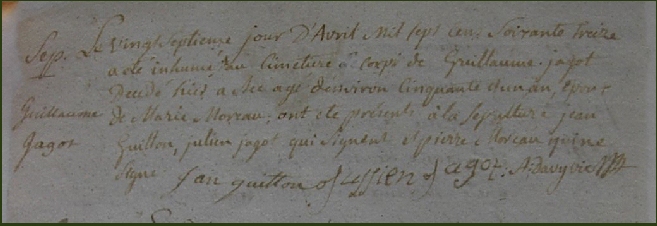 Sep. Le vingt septieme jour D'Avril Mil sept cent Soixante treize
a été inhumé au cimetiere le corps de Guillaume jagot
Decedé hier a agé denviron Cinquante dun an, epoux
Guillaume de Marie Moreau, ont été presents à la sepulture jean
Jagot Guitton, julien jagot qui signent et pierre Moreau qui ne
signe jan guitton jagot